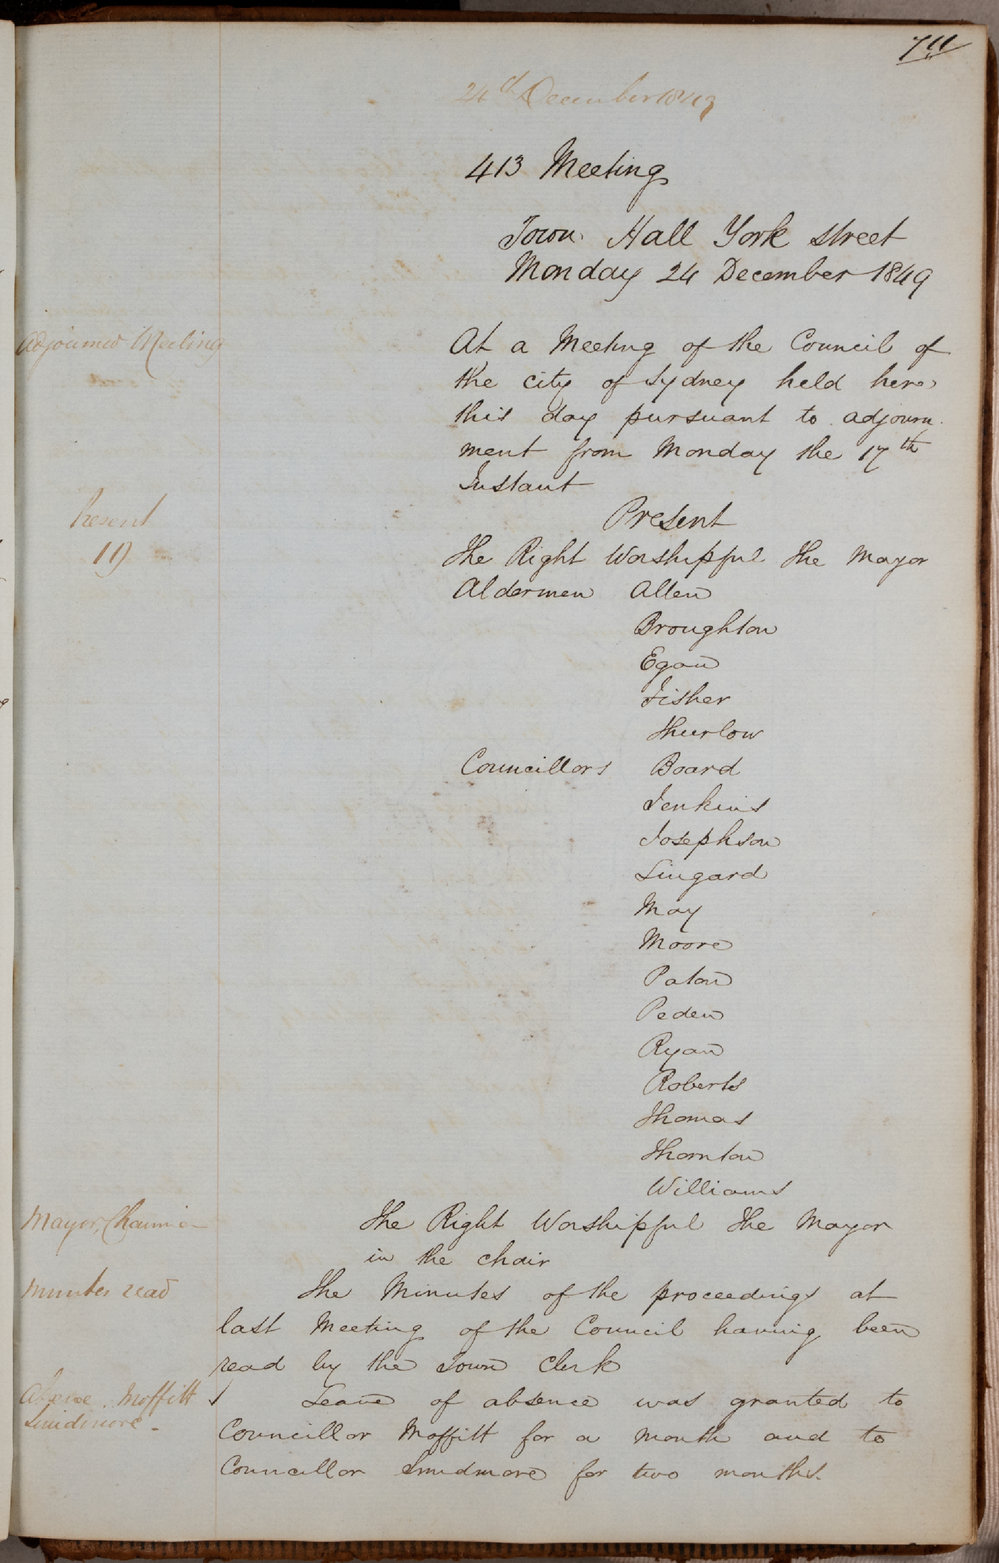 711
24th December 1849
413 Meeting
Town Hall York street
Monday 24 December 1849
Adjourned Meeting
At a Meeting of the Council of
the city of Sydney held here
this day pursuant to adjourn
ment from Monday the 17th
Instant
Present
19
Present
The Right Worshipful The Mayor
Aldermen Allen
Broughton
Egan
Fisher
Thurlow
Councillors Board
Jenkins
Josephson
Lingard
May
Moore
Paton
Peden
Ryan
Roberts
Thomas
Thornton
Williams
Mayor, Chair
The Right Worshipful The Mayor
in the chair
Minutes read
The Minutes of the proceedings at
last Meeting of the Council having been
read by the Town Clerk
Moffitt
Smidmore -
Leave of absence was granted to
Councillor Moffitt for a month and to
Councillor Smidmore for two months.